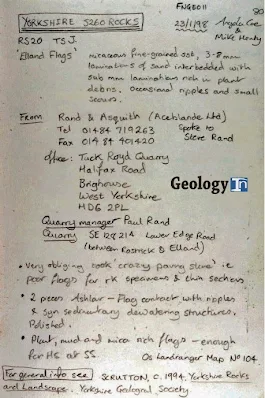 FNGE011
80
YORKSHIRE S260 ROCKS
23/1/98
Angela Coe
& Mike Henty
RS20 TSJ.
'Elland Flags' Micaceous fine-grained sst, 3-8mm
laminations of sand interbedded with
sub mm laminations rich in plant
debris. Occasional ripples and small
scours.
From Rand & Asquith (Acelands Ltd)
Tel 01484 719263 Spoke to
Fax 01484 401420 Steve Rand
Office: Tuck Royd Quarry
Halifax Road
Brighouse
West Yorkshire
HD6 2PL
Geology In
Quarry manager Paul Rand
Quarry SE 129214 Lower Edge Road
(between Rastrick & Elland)
• Very obliging took 'crazy paving stone' ie
poor flags for rk specimens & thin sections
• 2 pieces Ashlar - Flag contact with ripples
& syn sedimentary dewatering structures.
Polished.
• Plant, mud and mica rich flags - enough
for HS at SS Os Landranger Map No 104
For general info see SCRUTTON, C. 1994, Yorkshire Rocks
and Landscape. Yorkshire Geological Society.